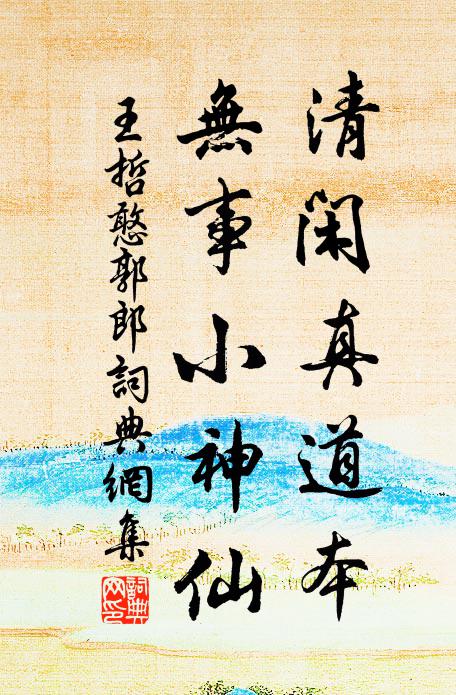 清閑真道本
無事小神仙
王哲憨郭郎詞典網集
詞典網印